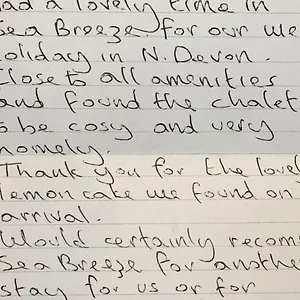 had a lovely time in
Sea Breeze for our we
oliday in N. Devon.
lose to all amenities
and found the chalet
o be cosy and very
homely.
Thank you for the lovel
lemon cake we found on
arrival.
Would certainly recom
Sea Breeze for anothe
stay for us or for